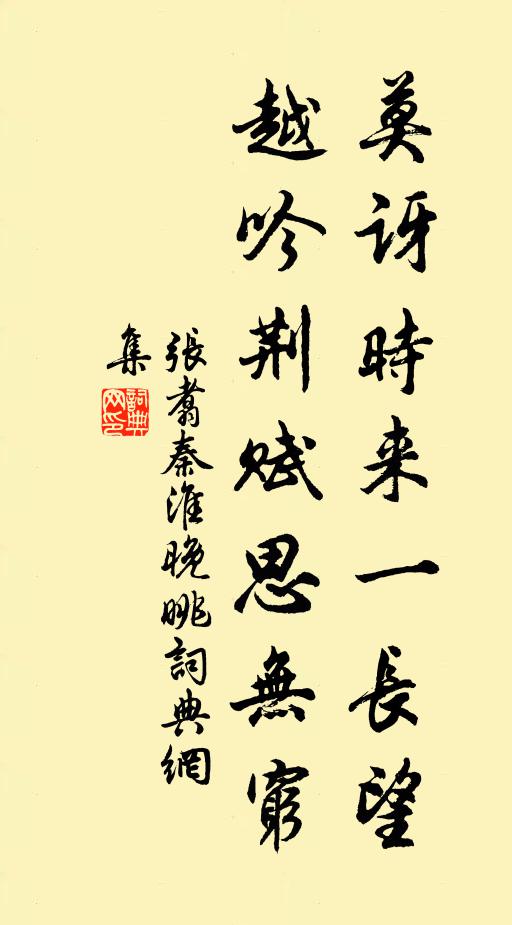 莫訝時来一長望
越吟荆赋思無窮
張翥秦淮晚眺詞典網
集
詞典
网印